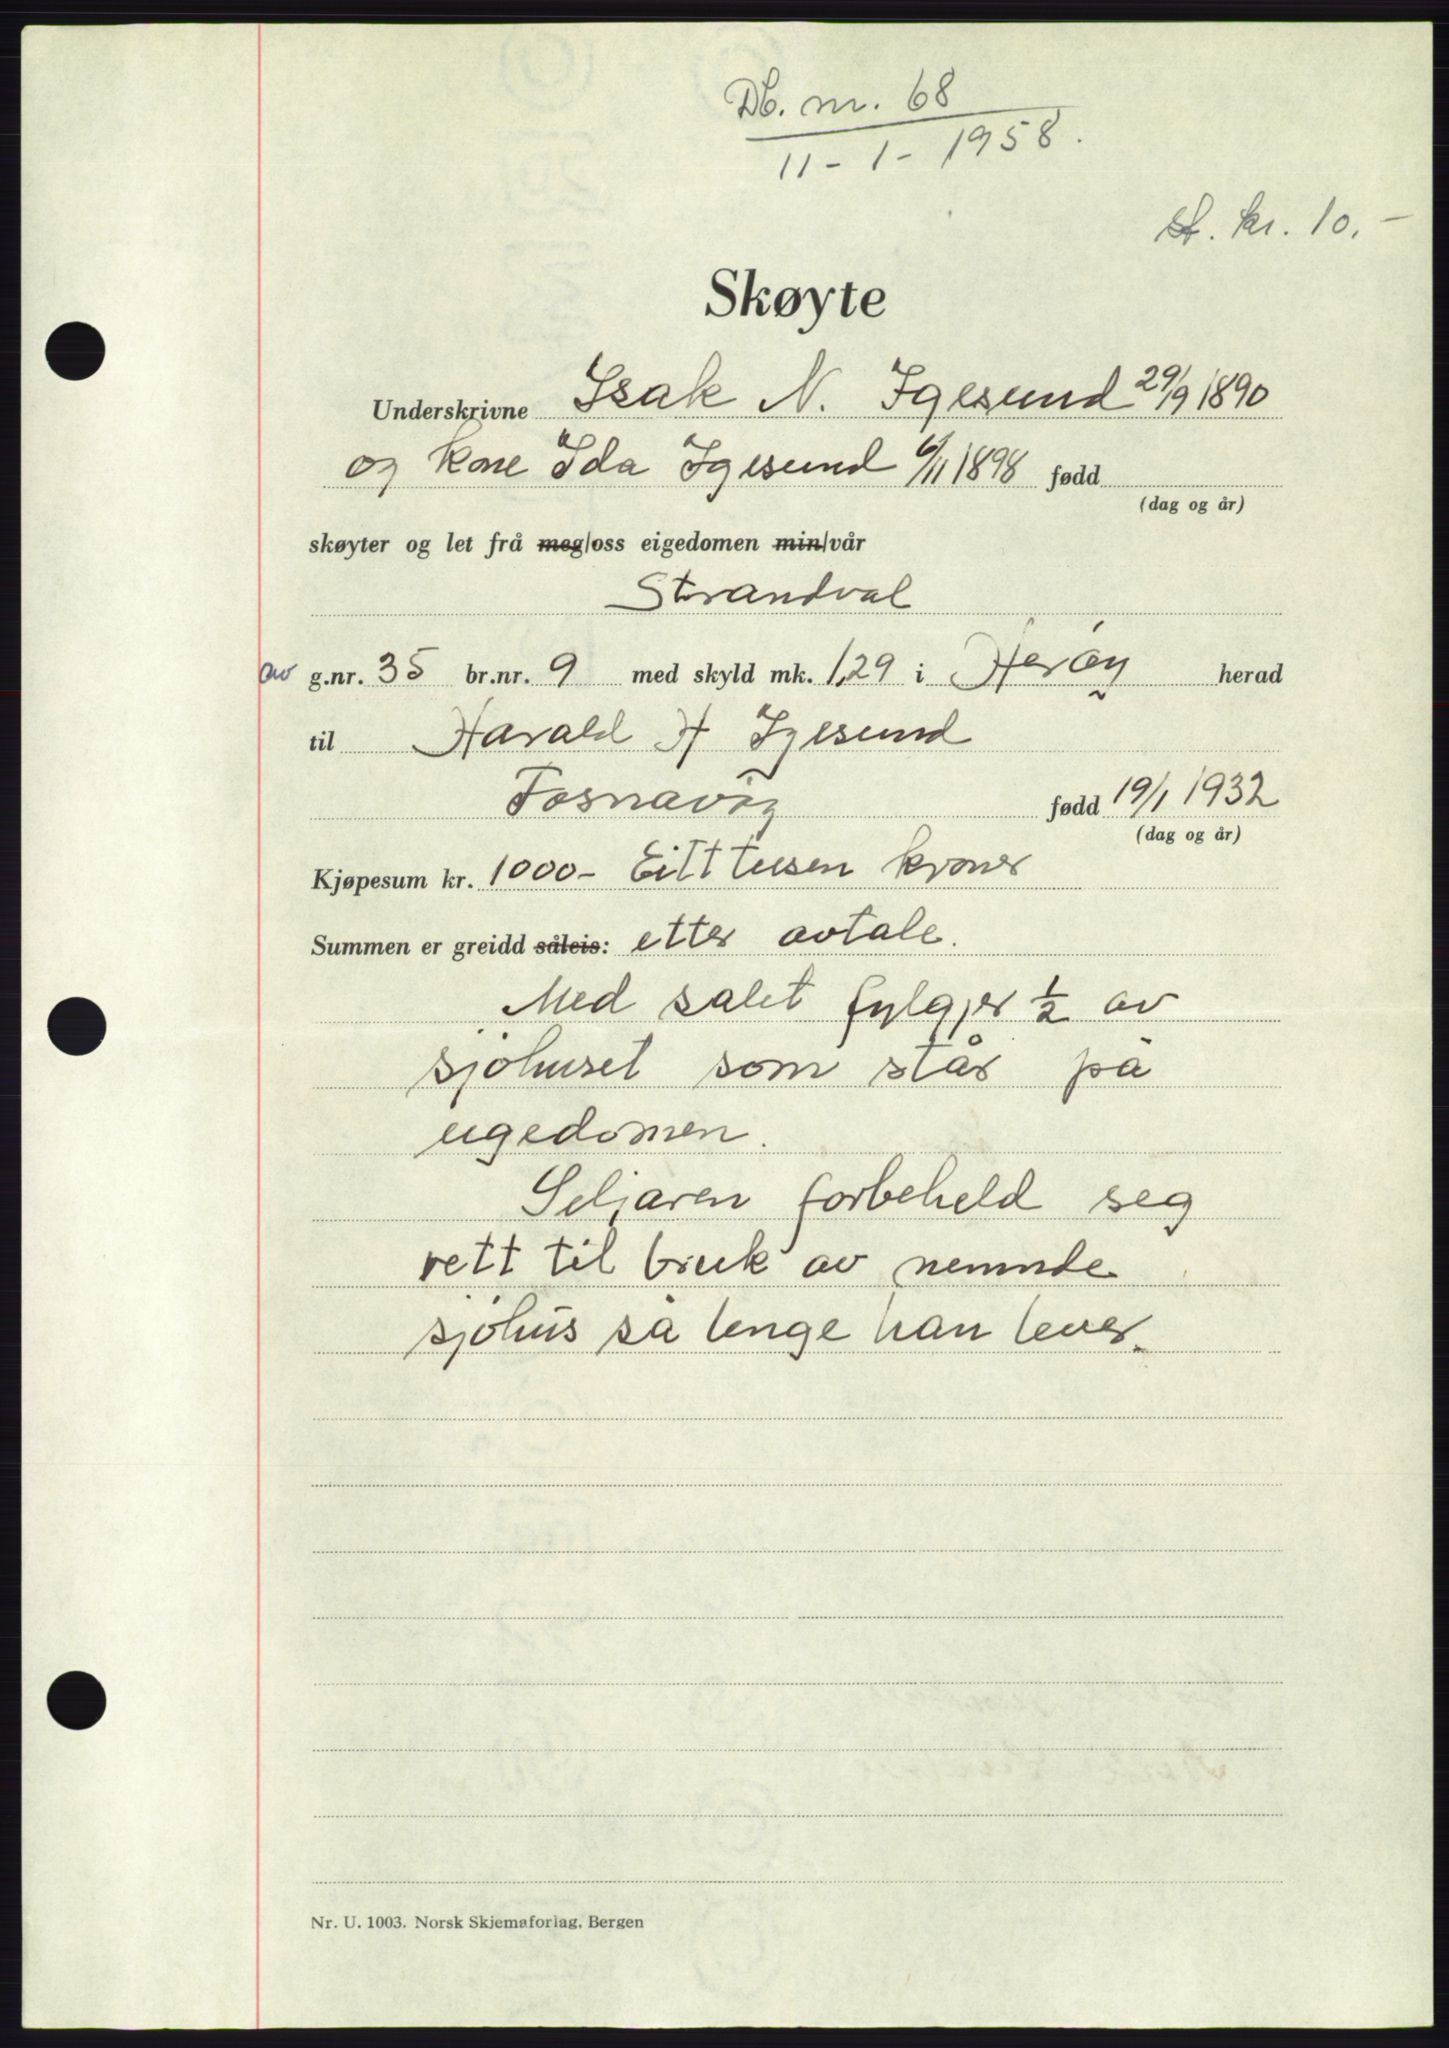 Db. nr. 68
11 - 1 - 1958.
st. kr. 10.-
Skøyte
Underskrivne Isak N. Igesund 29/9 1890
og kone Ida Igesund 6/11 1898 fødd
(dag og år)
skøyter og let frå meg/oss eigedomen min/vår
Strandval
av g.nr. 35 br.nr. 9 med skyld mk. 1,29 i Herøy herad
til Harald H Igesund
Fosnavåg fødd 19/1 1932
(dag og år)
Kjøpesum kr. 1000- Eitt tusen kroner
Summen er greidd såleis: etter avtale.
Med salet fylgjer 1/2 av
sjøhuset som står på
eigedomen.
Seljaren forbeheld seg
rett til bruk av nemnde
sjøhus så lenge han lever.
Nr. U. 1003. Norsk Skjemaforlag, Bergen